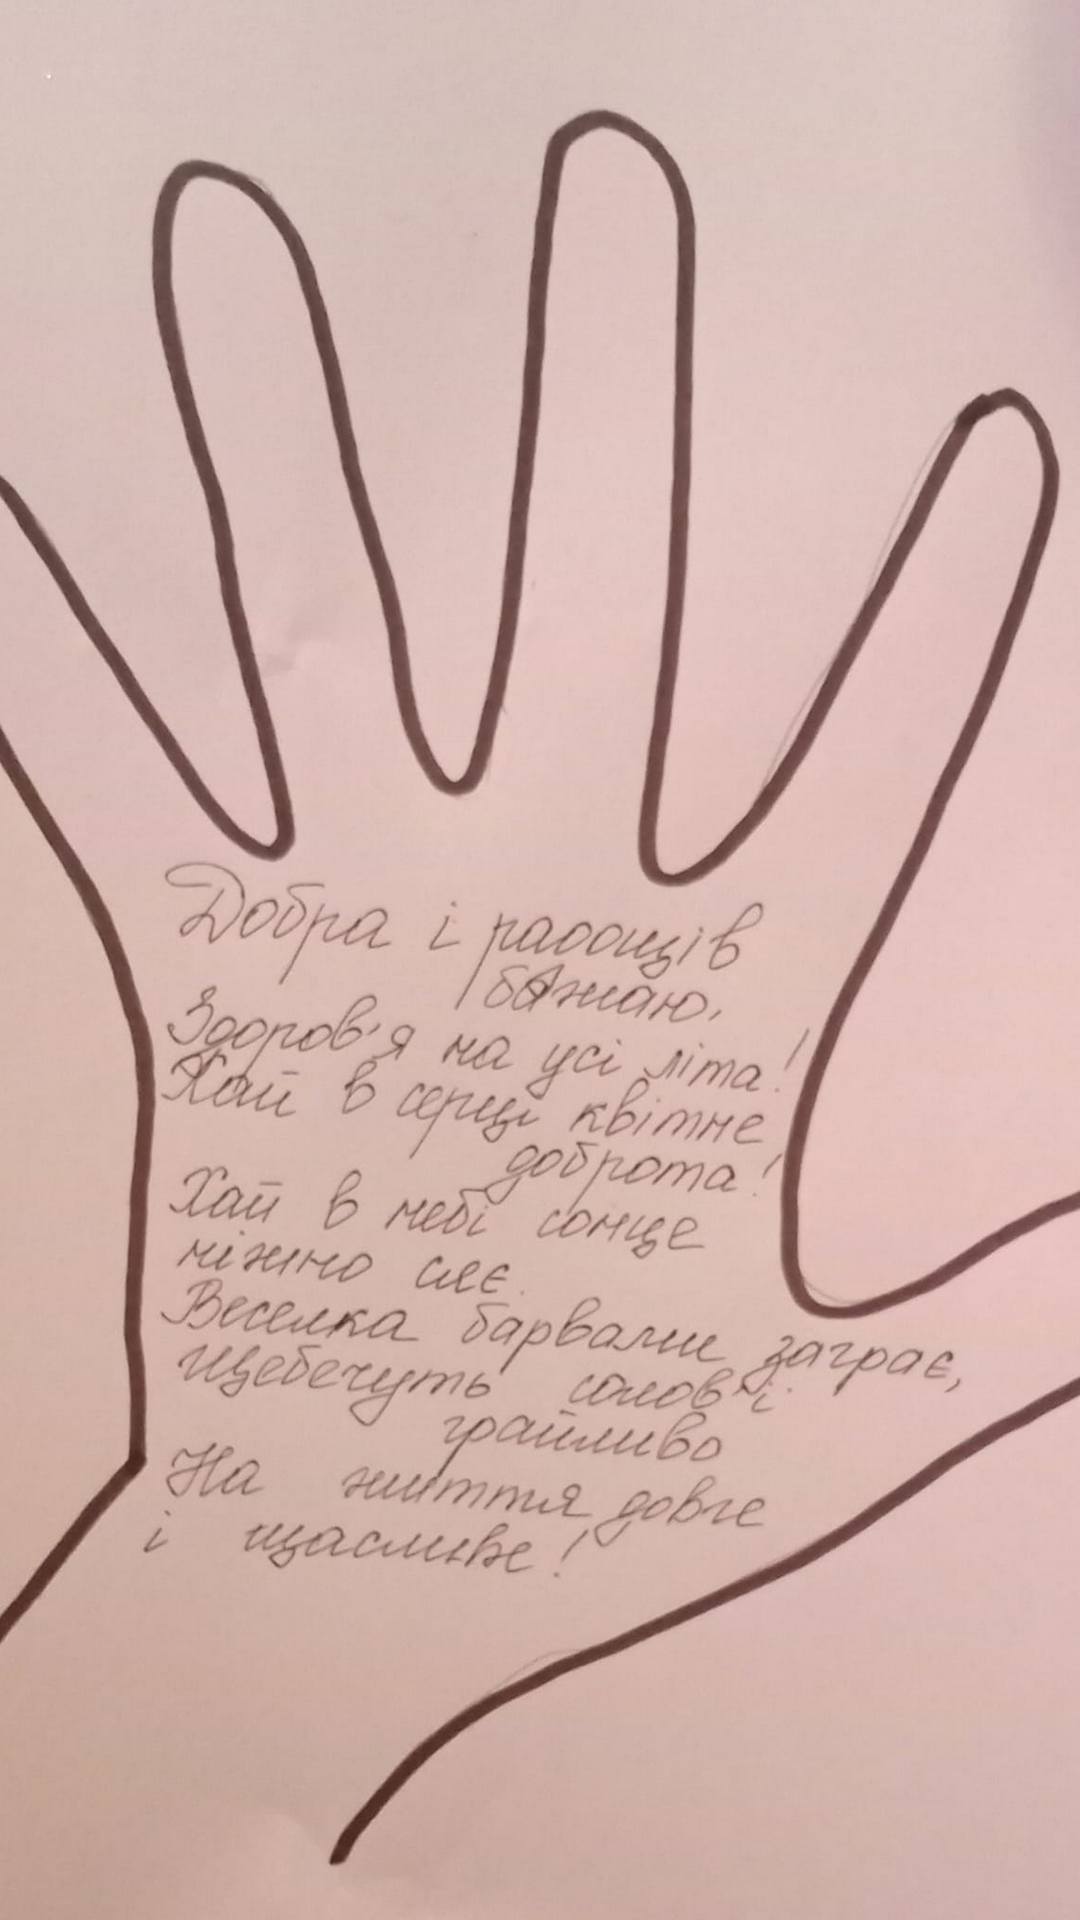 Добра і радощів
бажаю,
Здоров'я на усі літа!
Хай в серці квітне
доброта!
Хай в небі сонце
ніжно сяє.
Веселка барвами заграє,
Щебечуть солов'ї
грайливо
На життя довге
і щасливе!